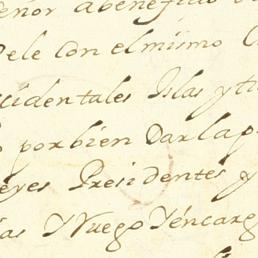 eñor abenefiçio
Dele con el mismo
cidentales Islas y ti
por bien Darla p
eyes Presidentes y
ias Y Ruego Yencarg